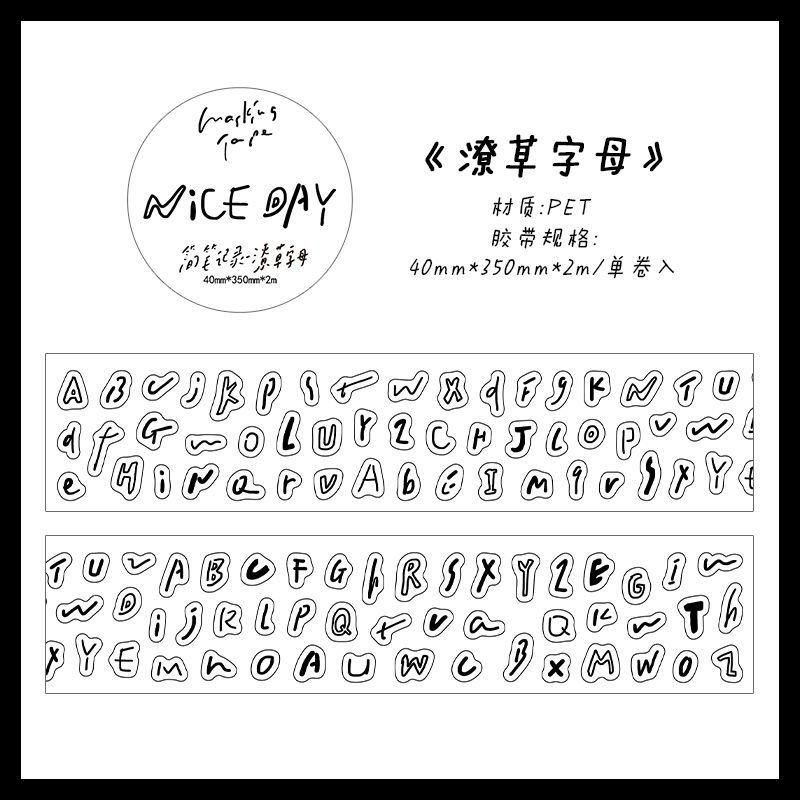 masking
Tape
NiCE DAY
简笔记录-潦草字母
40mm*350mm*2m
《潦草字母》
材质:PET
胶带规格:
40mm*350mm*2m/单卷入
A B c j k p s t w X d F g K N T U
d f G m o L U Y 2 C H J L O p v w
e H i N Q r V A b É I m q v S X Y t
T U v A B C F G h R S X Y Z E G i m
w D i j K L P Q t v a Q K m T h
X Y E m n O A U W c B x M W O Z